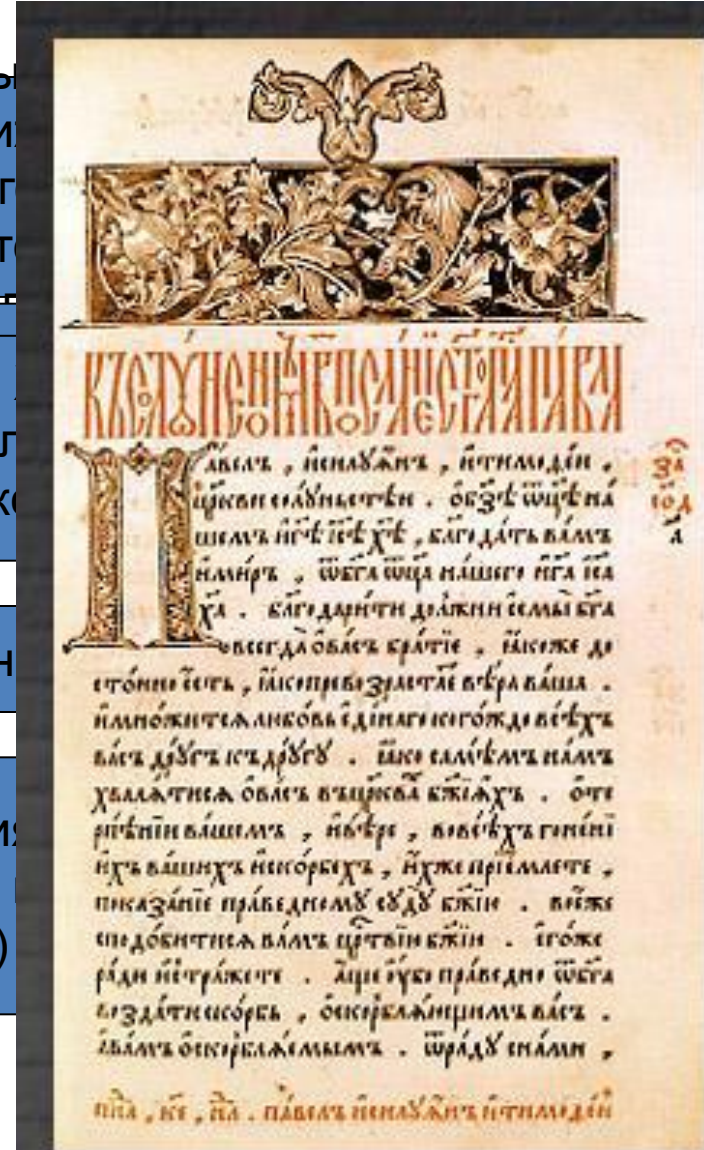 КЪ СОЛꙊ́НѦНОМЪ В҃ ПОСЛА́НІЕ СТГ҃О АПⷭ҇ЛА ПА́ВЛА
Па́велъ , исилꙋа́нъ , итимоѳе́и ,
цр҃кви солꙋ́ньстѣи . обзѣ ѿц҃ѣ на́
шемъ игⷭ҇ѣ іс҃ѣ хⷭ҇ѣ , благода́ть ва́мъ
ими́ръ , ѿбг҃а ѿц҃а на́шего игⷭ҇а іс҃а
хⷭ҇а . благодари́ти до́лжни есмы̀ бг҃а
всегда̀ ова́съ бра́тїе , ꙗ́коже до
сто́ино е́сть , ꙗ́ко превозраста́е вѣ́ра ва́ша .
имно́житсѧ любо́вь еди́наго кого́ждо всѣ́хъ
ва́съ дрꙋ́гъ къ дрꙋ́гꙋ . ꙗ́ко самѣ́мъ на́мъ
хвали́тисѧ ова́съ въ цр҃ква бж҃їѧхъ . оте
рпѣ́нїи ва́шемъ , ивѣ́ре , вовсѣ́хъ гоне́нї
ихъ ва́шихъ искорбехъ , и́хже прїе́млете ,
показа́нїе пра́ведномꙋ сꙋдꙋ̀ бж҃їю . воѐже
сподо́битисѧ ва́мъ црⷭ҇твїю бж҃їю . его́же
ра́ди истра́жете . а́ще ꙋбо пра́ведно ѿбг҃а
возда́ти ско́рбь , оскорблѧ́ющимъ ва́съ .
ава́мъ оскорблѧ́емымъ . ѿра́дꙋ сна́ми ,
за
сод
а
Па́велъ исилꙋа́нъ итимоѳе́и